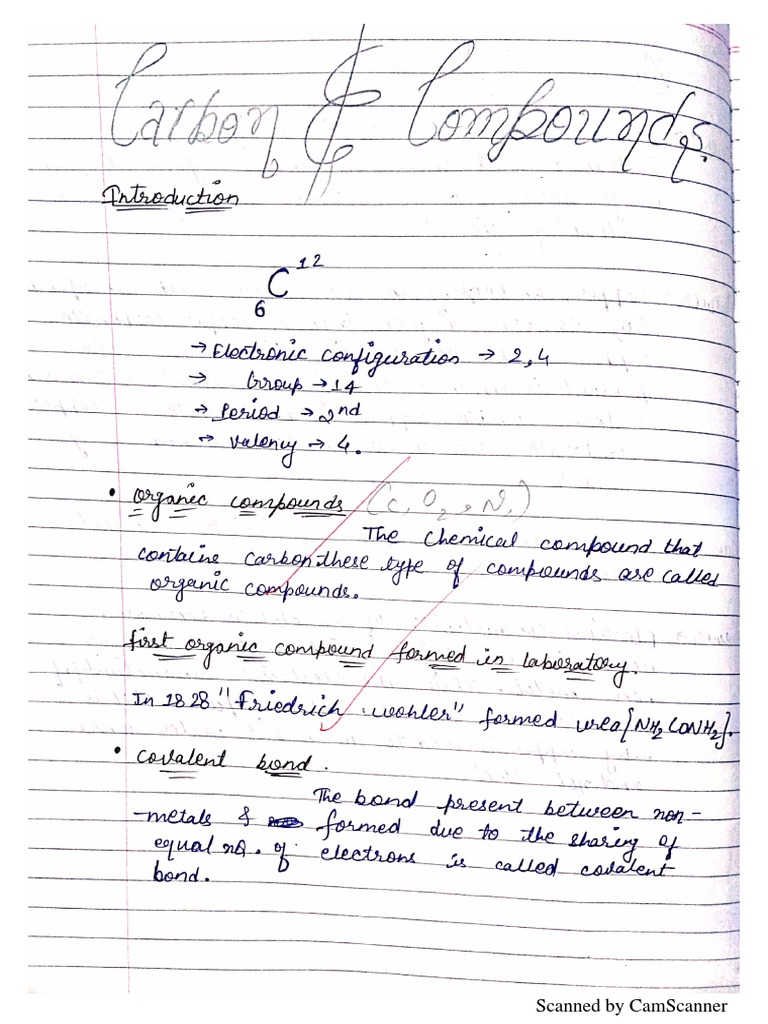 Carbon & Compounds.
Introduction
12
C
6
→ Electronic configuration → 2,4
→ Group → 14
→ Period → 2nd
→ Valency → 4.
• organic compounds (C, O2, N,)
The chemical compound that
contains carbon these type of compounds are called
organic compounds.
first organic compound formed in laboratory.
In 1828 "Friedrich wohler" formed urea [NH2CONH2].
• covalent bond.
The bond present between non-
-metals & formed due to the sharing of
equal no. of electrons is called covalent
bond.
Scanned by CamScanner